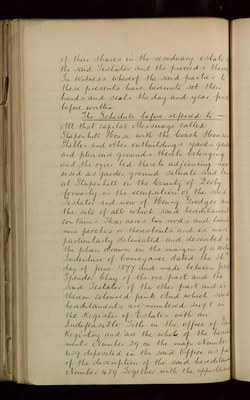 of their shares in the residuary estate
the said Testator and the proceeds thereof
In witness whereof the said parties to
these presents have hereunto set their
hands and seals the day and year first
before written
The Schedule before referred to —
All that capital Messuage called
Stapenhill House with the Coach House
Stables and other outbuildings yards gardens
and pleasure grounds thereto belonging
and the piece land thereto adjoining now
used as garden ground situate and being
at Stapenhill in the County of Derby
formerly in the occupation of the said
Testator and now of Henry Goodger and
the site of all which said hereditaments
contains Three acres two roods and
nine perches or thereabouts and is more
particularly delineated and described in
the plan drawn in the margin of a certain
Indenture of Conveyance dated the 30
day of June 1877 and made between
of the one part and the
said Testator of the other part and is
thereon coloured pink And which said
hereditaments are numbered in
the Register of Estates with an
Indefeasible Title in the office of Land
Registry and are the whole of the
Number 39 on the map Number
439 deposited in the said Office as part
of the description of the said hereditaments
Number 439 Together with the appurtenances